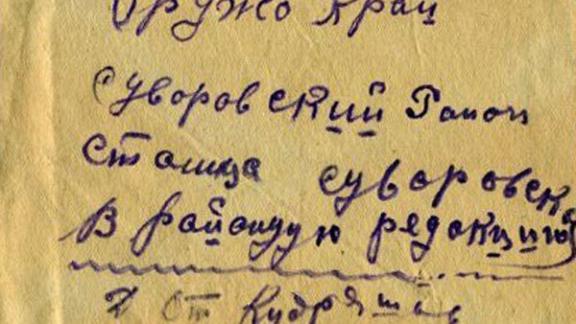 Оружо Край
Суворовский Раион
Станица суворовска
В районную редокцию
От Кудряшов